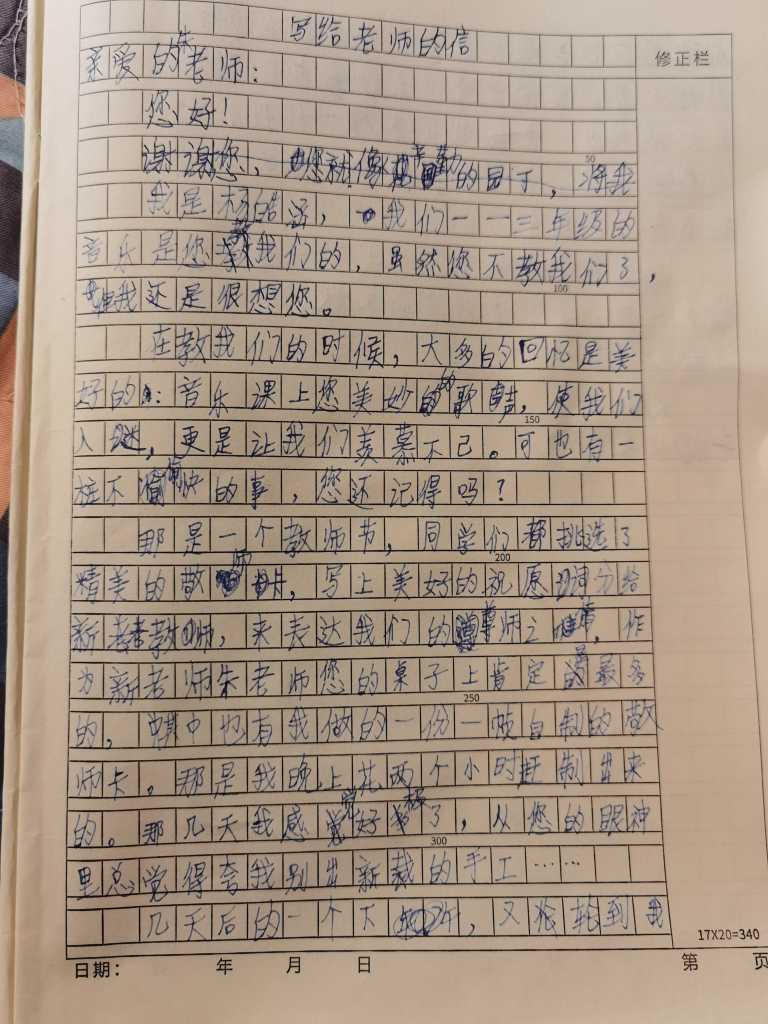 写给老师的信
修正栏
亲爱的朱老师：
您好！
谢谢您，您就像辛勤的园丁，将我
我是杨皓涵，我们一一三年级的
音乐是您教我们的，虽然您不教我们了，
但我还是很想您。
在教我们的时候，大多的回忆是美
好的：音乐课上您美妙的歌声，使我们
入迷，更是让我们羡慕不已。可也有一
桩不愉快的事，您还记得吗？
那是一个教师节，同学们都挑选了
精美的敬师卡，写上美好的祝愿词分给
新老教师，来表达我们的尊师之情，作
为新老师朱老师您的桌子上肯定是最多
的，其中也有我做的一份一帧自制的敬
师卡。那是我晚上花两个小时赶制出来
的。那几天我感觉好极了，从您的眼神
里总觉得夸我别出新裁的手工……
几天后的一个下午，又轮到我
50
100
150
200
250
300
17X20=340
日期： 年 月 日 第 页